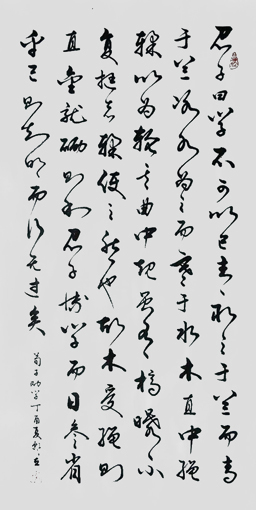 君子曰学不可以已青取之于蓝而青
于蓝冰水为之而寒于水木直中绳
輮以为轮其曲中规虽有槁暴不
复挺者輮使之然也故木受绳则
直金就砺则利君子博学而日参省
乎己则知明而行无过矣
荀子劝学丁酉夏